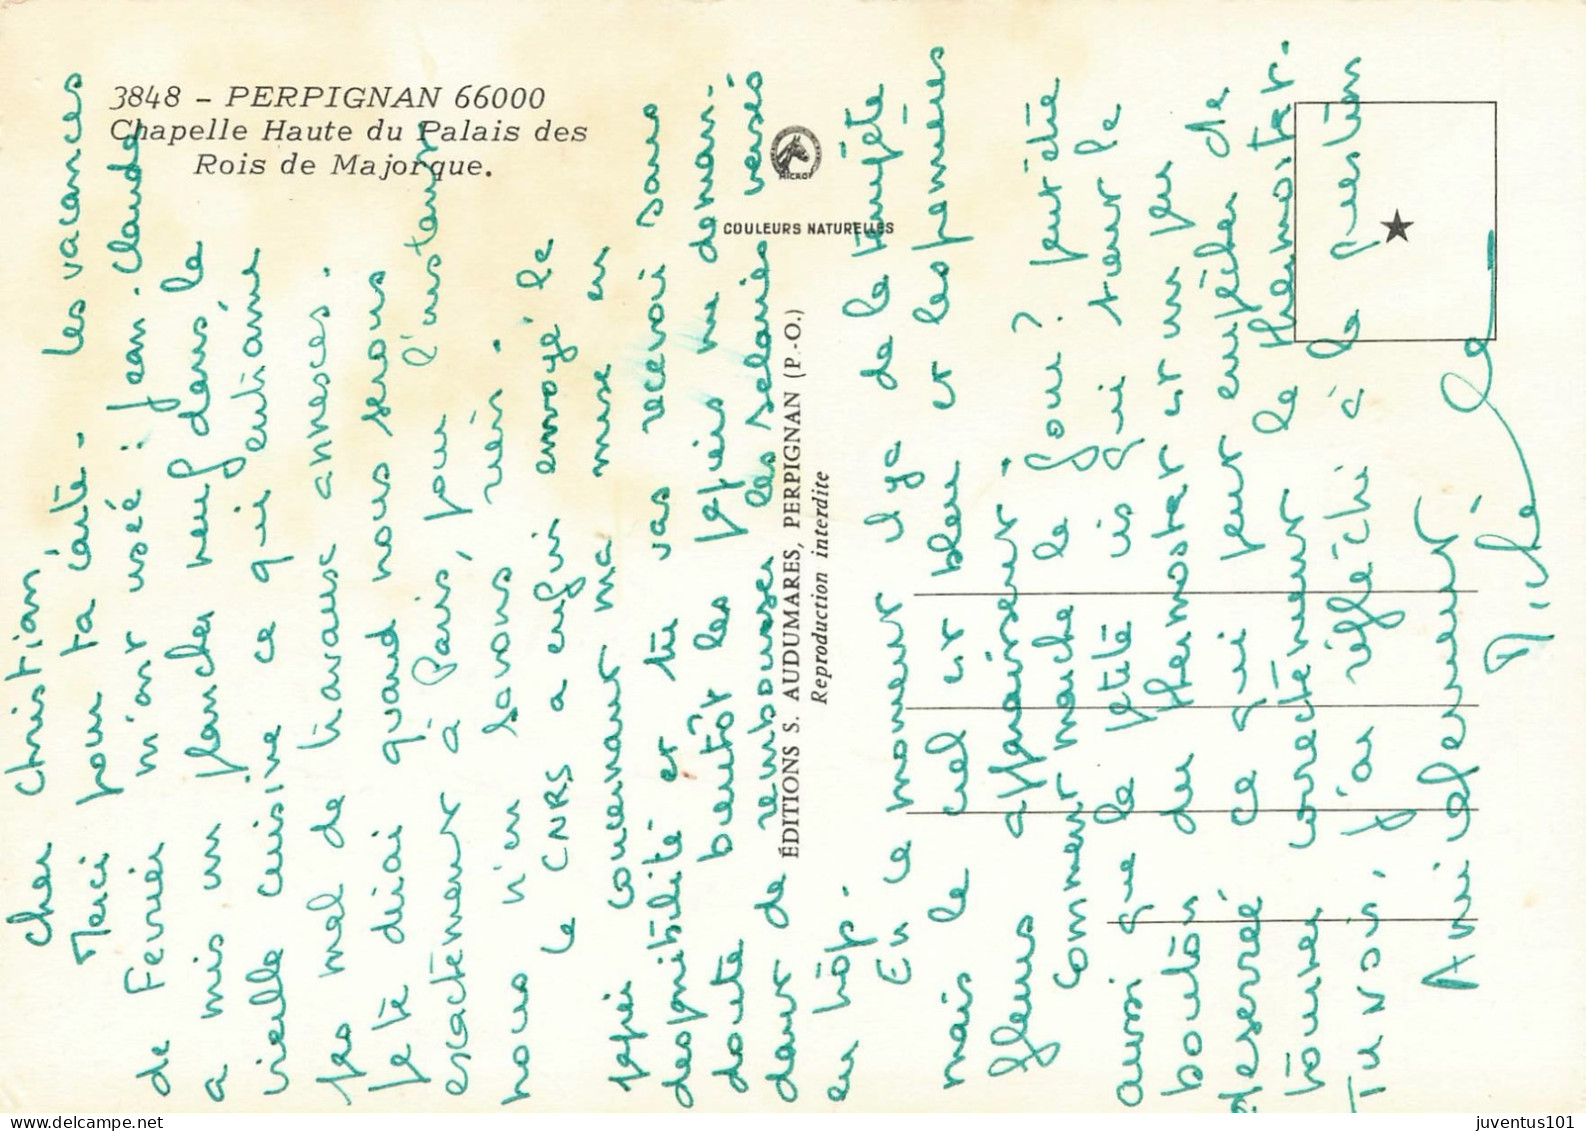 3848 - PERPIGNAN 66000
Chapelle Haute du Palais des
Rois de Majorque.
MICRO
COULEURS NATURELLES
ÉDITIONS S. AUDUMARES, PERPIGNAN (P.-O.)
Reproduction interdite
Cher Christian,
Merci pour ta carte - les vacances
de Fevrier m'ont usé : Jean-Claude
a mis un plancher neuf dans la
vieille cuisine ce qui entraine
pas mal de travaux annexes.
Je te dirai quand nous serons
exactement à Paris, pour l'instant
nous n'en savons rien.
Le CNRS a enfin envoyé le
papier concernant ma mise en
disponibilité et tu vas recevoir sans
doute bientôt les papiers me deman-
dant de rembourser les salaires versés
en trop.
En ce moment il y a de la tempête
mais le ciel est bleu et les premières
fleurs apparaissent.
Comment marche le four ? peut être
aussi que la petite vis qui tient le
bouton du thermostat est un peu
desserrée ce qui peut empêcher de
tourner correctement le thermostat.
Tu vois, j'ai réfléchi à la question
Amicalement
juventus101